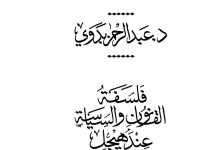 د. عبد الرحمن بدوي
فلسفة
القانون والسياسة
عند هيجل